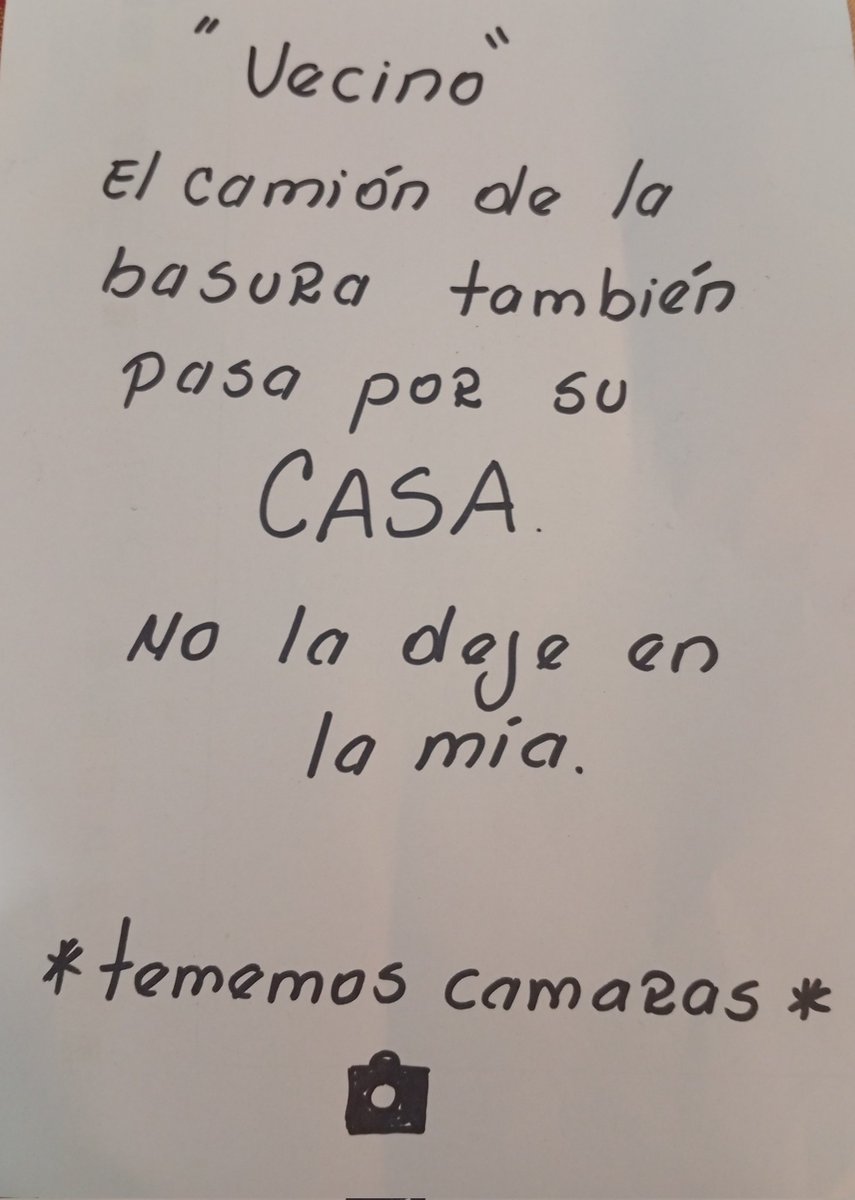 "Vecino"
El camión de la
basuRa también
pasa poR su
CASA.
No la deje en
la mía.
*tememos camaRas*